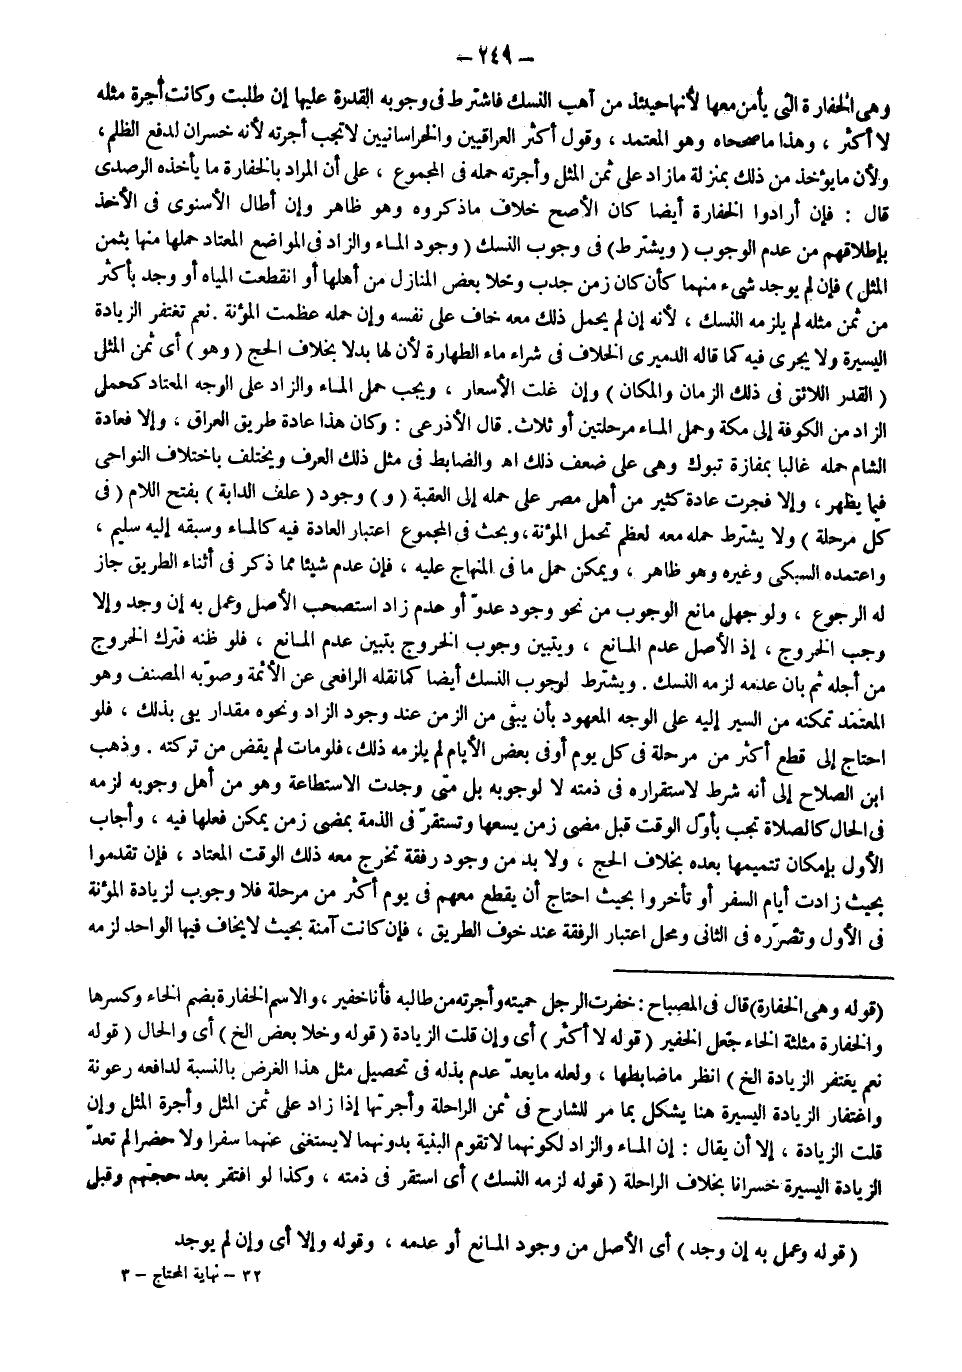 — ٢٤٩ —
وهى الخفارة التى يأمن معها لأنها حينئذ من أهب النسك فاشترط فى وجوبه القدرة عليها إن طلبت وكانت أجرة مثله
لا أكثر ، وهذا ما صححاه وهو المعتمد ، وقول أكثر العراقيين والخراسانيين لاتجب أجرته لأنه خسران لدفع الظلم ،
ولأن مايؤخذ من ذلك بمنزلة مازاد على ثمن المثل وأجرته حمله فى المجموع ، على أن المراد بالخفارة ما يأخذه الرصدى
قال : فإن أرادوا الخفارة أيضا كان الأصح خلاف ماذكروه وهو ظاهر وإن أطال الأسنوى فى الأخذ
بإطلاقهم من عدم الوجوب ( ويشترط ) فى وجوب النسك ( وجود الماء والزاد فى المواضع المعتاد حملها منها بثمن
المثل ) فإن لم يوجد شىء منهما كأن كان زمن جدب وخلا بعض المنازل من أهلها أو انقطعت المياه أو وجد بأكثر
من ثمن مثله لم يلزمه النسك ، لأنه إن لم يحمل ذلك معه خاف على نفسه وإن حمله عظمت المؤنة . نعم تغتفر الزيادة
اليسيرة ولا يجرى فيه كما قاله الدميرى الخلاف فى شراء ماء الطهارة لأن لها بدلا بخلاف الحج ( وهو ) أى ثمن المثل
( القدر اللائق فى ذلك الزمان والمكان ) وإن غلت الأسعار ، ويجب حمل الماء والزاد على الوجه المعتاد كحمل
الزاد من الكوفة إلى مكة وحمل الماء مرحلتين أو ثلاث. قال الأذرعى : وكان هذا عادة طريق العراق ، وإلا فعادة
الشام حمله غالبا بمفازة تبوك وهى على ضعف ذلك اه والضابط فى مثل ذلك العرف ويختلف باختلاف النواحى
فيما يظهر ، وإلا فجرت عادة كثير من أهل مصر على حمله إلى العقبة ( و ) وجود ( علف الدابة ) بفتح اللام ( فى
كل مرحلة ) ولا يشترط حمله معه لعظم تحمل المؤنة ، وبحث فى المجموع اعتبار العادة فيه كالماء وسبقه إليه سليم ،
واعتمده السبكى وغيره وهو ظاهر ، ويمكن حمل ما فى المنهاج عليه ، فإن عدم شيئا مما ذكر فى أثناء الطريق جاز
له الرجوع ، ولو جهل مانع الوجوب من نحو وجود عدوّ أو عدم زاد استصحب الأصل وعمل به إن وجد وإلا
وجب الخروج ، إذ الأصل عدم المانع ، ويتبين وجوب الخروج بتبين عدم المانع ، فلو ظنه فترك الخروج
من أجله ثم بان عدمه لزمه النسك . ويشترط لوجوب النسك أيضا كما نقله الرافعى عن الأئمة وصوّبه المصنف وهو
المعتمد تمكنه من السير إليه على الوجه المعهود بأن يبقى من الزمن عند وجود الزاد ونحوه مقدار يفى بذلك ، فلو
احتاج إلى قطع أكثر من مرحلة فى كل يوم أوفى بعض الأيام لم يلزمه ذلك ، فلومات لم يقض من تركته . وذهب
ابن الصلاح إلى أنه شرط لاستقراره فى ذمته لا لوجوبه بل متى وجدت الاستطاعة وهو من أهل وجوبه لزمه
فى الحال كالصلاة تجب بأوّل الوقت قبل مضى زمن يسعها وتستقرّ فى الذمة بمضى زمن يمكن فعلها فيه ، وأجاب
الأول بإمكان تتميمها بعده بخلاف الحج ، ولا بد من وجود رفقة تخرج معه ذلك الوقت المعتاد ، فإن تقدموا
بحيث زادت أيام السفر أو تأخروا بحيث احتاج أن يقطع معهم فى يوم أكثر من مرحلة فلا وجوب لزيادة المؤنة
فى الأول وتضرّره فى الثانى ومحل اعتبار الرفقة عند خوف الطريق ، فإن كانت آمنة بحيث لايخاف فيها الواحد لزمه
(قوله وهى الخفارة) قال فى المصباح : خفرت الرجل حميته وأجرته من طالبه فأنا خفير ، والاسم الخفارة بضم الخاء وكسرها
والخفارة مثلثة الخاء جعل الخفير ( قوله لا أكثر ) أى وإن قلت الزيادة ( قوله وخلا بعض الخ ) أى والحال ( قوله
نعم يغتفر الزيادة الخ ) انظر ماضابطها ، ولعله مايعدّ عدم بذله فى تحصيل مثل هذا الغرض بالنسبة لدافعه رعونة
واغتفار الزيادة اليسيرة هنا يشكل بما مر للشارح فى ثمن الراحلة وأجرتها إذا زاد على ثمن المثل وأجرة المثل وإن
قلت الزيادة ، إلا أن يقال : إن الماء والزاد لكونهما لاتقوم البنية بدونهما لايستغنى عنهما سفرا ولا حضرا لم تعدّ
الزيادة اليسيرة خسرانا بخلاف الراحلة ( قوله لزمه النسك ) أى استقر فى ذمته ، وكذا لو افتقر بعد حجتهم وقبل
( قوله وعمل به إن وجد ) أى الأصل من وجود المانع أو عدمه ، وقوله وإلا أى وإن لم يوجد
٣٢ - نهاية المحتاج - ٣